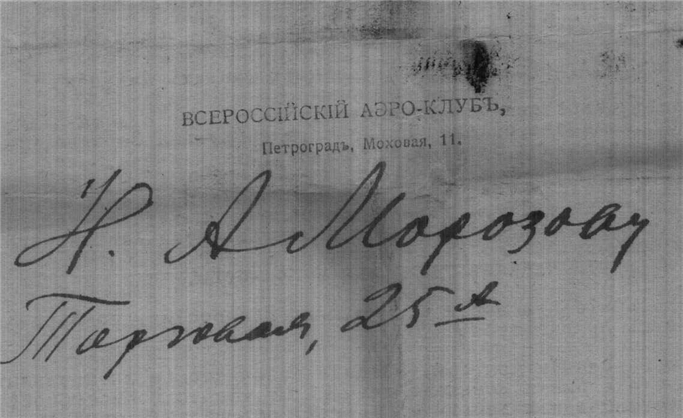 ВСЕРОССІЙСКІЙ АЭРО-КЛУБЪ,
Петроградъ, Моховая, 11.
Н. А Морозову
Торговая, 25 А